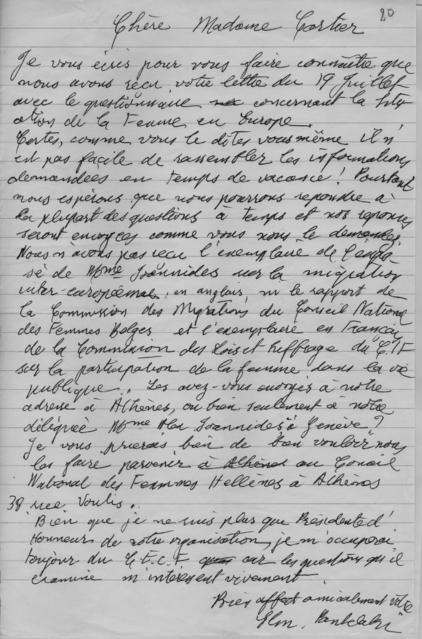 20
Chère Madame Cortier
Je vous écris pour vous faire connaître que
nous avons reçu votre lettre du 19 Juillet
avec le questionnaire concernant la Situ
ation de la Femme en Europe.
Certes, comme vous le dites vous même il n'
est pas facile de rassembler les informations
demandées en temps de vacance! Pourtant
nous espérons que nous pourrons repondre à
la plupart des questions à temps et nos reponses
seront envoyées comme vous nous le demandez.
Nous n'avons pas reçu l'exemplaire de l'expo
sé de Mme Ioannides sur la migration
inter-européenne, en anglais, ni le rapport de
la Commission des Migrations du Conseil National
des Femmes Belges et l'exemplaire en Français
de la Commission des Lois et Suffrage du C.I.F
sur la participation de la femme dans la vie
publique. Les avez-vous envoyés à notre
adresse à Athènes, ou bien seulement à notre
déléguée Mme Ioannides à Genève?
Je vous prierais bien de bien vouloir nous
les faire parvenir à Athènes au Conseil
National des Femmes Hellènes à Athènes
38 rue Voulis.
Bien que je ne suis plus que Présidente d'
Honneur de notre organisation, je m'occuperai
toujour du C.E.C.F car les questions qu'il
examine m'intéresent vivement.
Bien affect amicalement vôtre